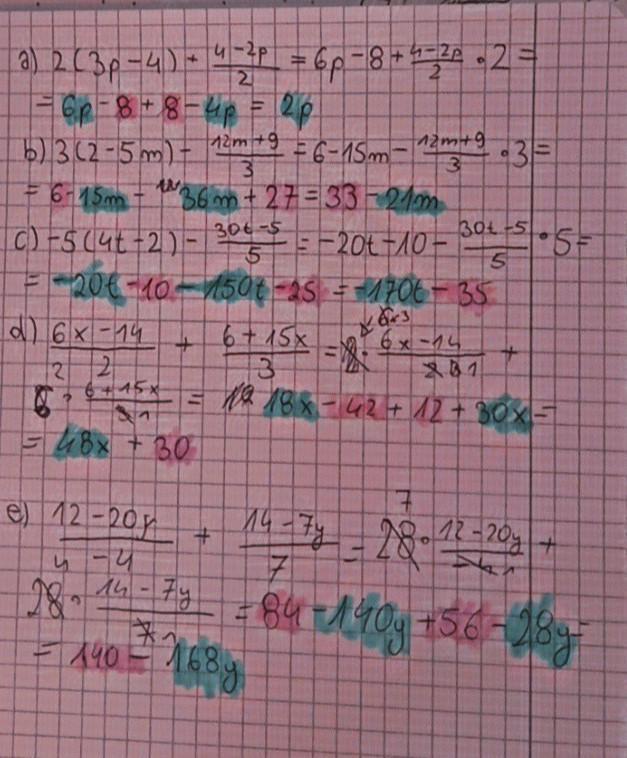 a) 2(3p-4) + 4-2p/2 = 6p-8 + 4-2p/2 · 2 =
= 6p - 8 + 8 - 4p = 2p
b) 3(2-5m) - 12m+9/3 = 6-15m - 12m+9/3 · 3 =
= 6-15m - 36m + 27 = 33 - 21m
c) -5(4t-2) - 30t-5/5 = -20t-10 - 30t-5/5 · 5 =
= -20t - 10 - 150t - 25 = -170t - 35
d) 6x-14/2 + 6+15x/3 = · 6x-14/1 +
6 · 6+15x/1 = 18x - 42 + 12 + 30x =
= 48x + 30
e) 12-20y/-4 + 14-7y/7 = 28 · 12-20y/1 +
28 · 14-7y/7 = 84 - 140y + 56 - 28y =
= 140 - 168y